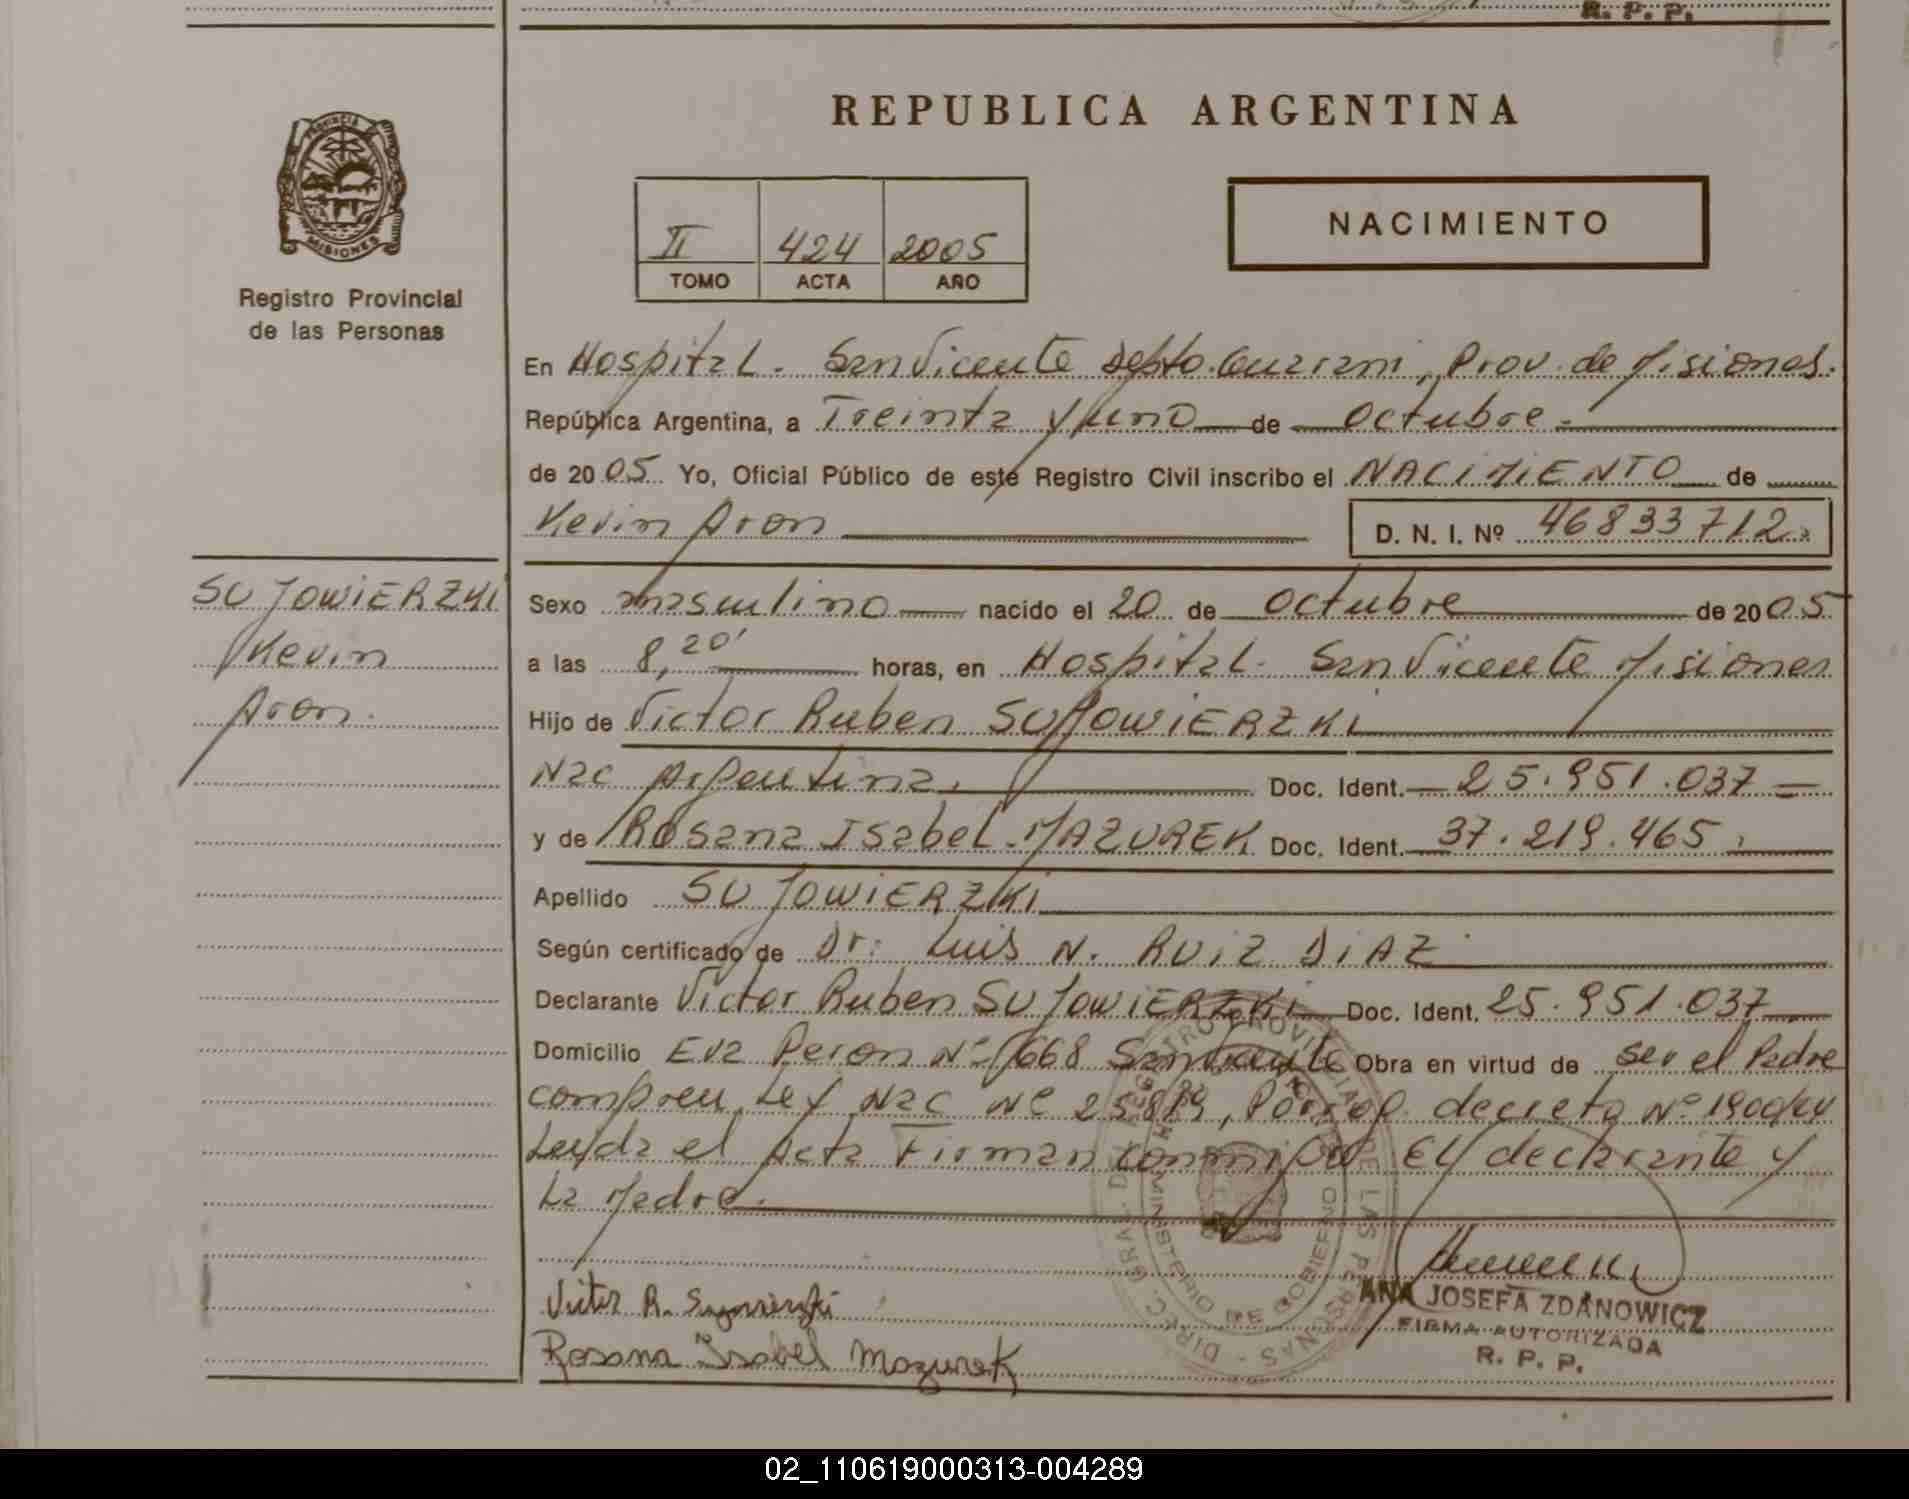 R. P. P.
REPUBLICA ARGENTINA
PROVINCIA
MISIONES
Registro Provincial
de las Personas
II 424 2005
TOMO ACTA AÑO
NACIMIENTO
En Hospital. San Vicente Depto. Guarani, Prov. de Misiones.
República Argentina, a Treinta y uno de Octubre
de 2005 Yo, Oficial Público de este Registro Civil inscribo el NACIMIENTO de
Kevin Aron
D. N. I. Nº 46833712
SUJOWIERZKI
Kevin
Aron.
Sexo masculino nacido el 20 de Octubre de 2005
a las 8,20' horas, en Hospital. San Vicente Misiones
Hijo de Victor Ruben SUJOWIERZKI
Nac Argentina. Doc. Ident. 25.951.037
y de Rosana Isabel MAZUREK Doc. Ident. 37.219.465
Apellido SUJOWIERZKI
Según certificado de Dr. Luis N. RUIZ DIAZ
Declarante Victor Ruben SUJOWIERZKI Doc. Ident. 25.951.037
Domicilio Eva Peron Nº 668 San Vicente Obra en virtud de ser el Padre
compren. Ley Nac Nº 25819, Porrog. decreto Nº 1900/04
Leida el Acta Firman conmigo El declarante y
La Madre.
Victor R.
Rosana Isabel Mazurek
ANA JOSEFA ZDANOWICZ
FIRMA AUTORIZADA
R. P. P.
DIREC. GRAL. DEL REGISTRO PROVINCIAL DE LAS PERSONAS
MINISTERIO DE GOBIERNO
02_110619000313-004289